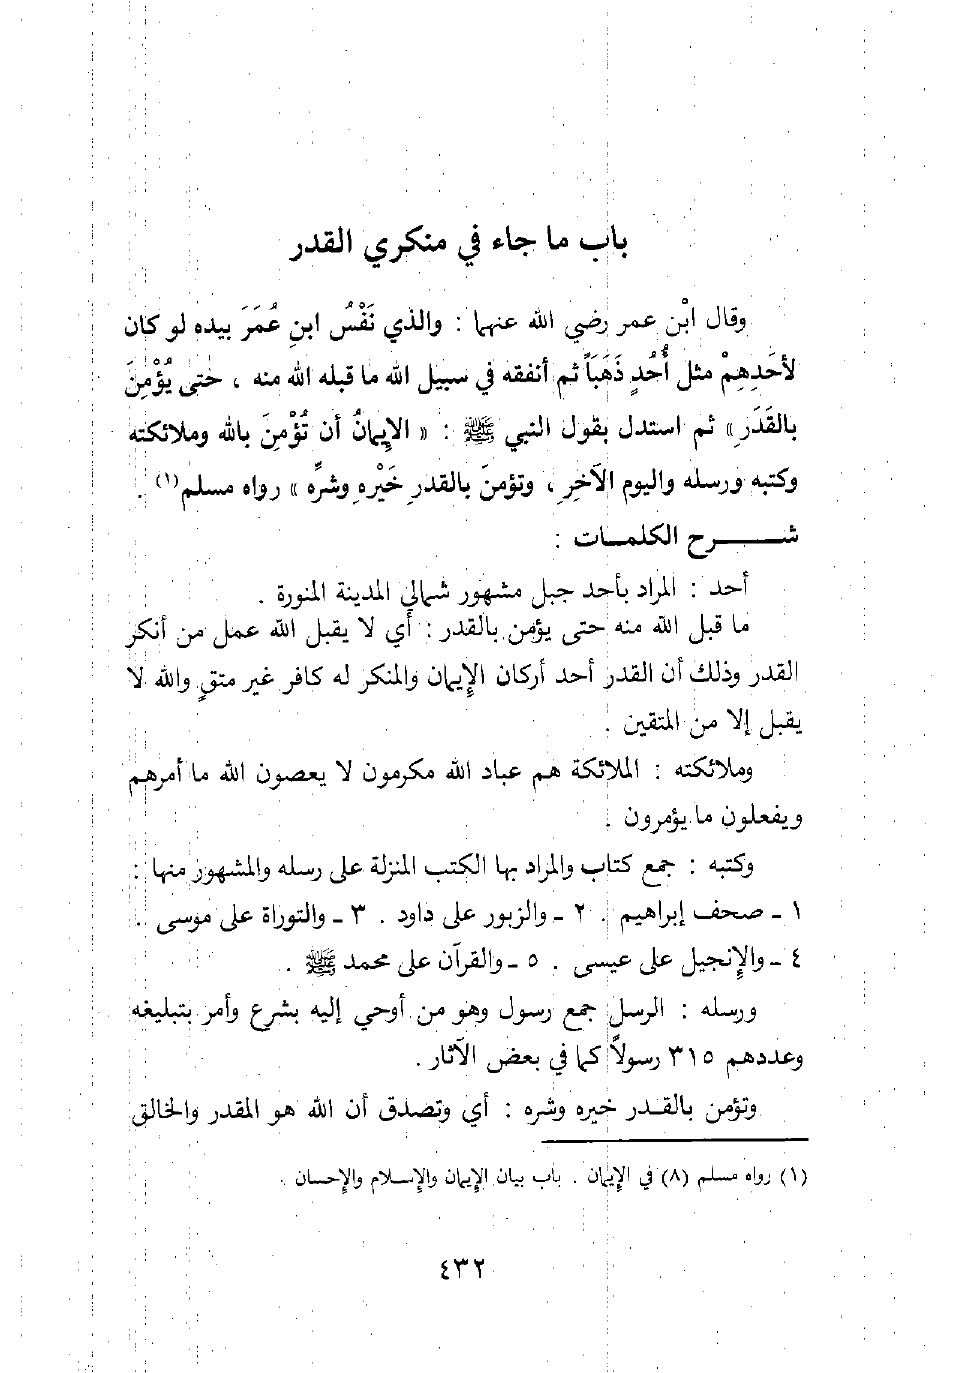 باب ما جاء في منكري القدر
وقال ابْن عمر رضي الله عنهما : والذي نَفْسُ ابنِ عُمَرَ بيده لو كان
لأحَدِهِمْ مثل أُحُدٍ ذَهَبَاً ثم أنفقه في سبيل الله ما قبله الله منه ، حتى يُؤْمِنَ
بالقَدَرِ» ثم استدل بقول النبي ﷺ : « الإيمانُ أن تُؤْمِنَ بالله وملائكته
وكتبه ورسله واليوم الآخِرِ ، وتؤمنَ بالقدرِ خَيْرِهِ وشرِّه » رواه مسلم(١) .
شـــــرح الكلمـات :
أحد : المراد بأحد جبل مشهور شمالي المدينة المنورة .
ما قبل الله منه حتى يؤمن بالقدر : أي لا يقبل الله عمل من أنكر
القدر وذلك أن القدر أحد أركان الإيمان والمنكر له كافر غير متقٍ والله لا
يقبل إلا من المتقين .
وملائكته : الملائكة هم عباد الله مكرمون لا يعصون الله ما أمرهم
ويفعلون ما يؤمرون .
وكتبه : جمع كتاب والمراد بها الكتب المنزلة على رسله والمشهور منها :
١ ـ صحف إبراهيم . ٢ ـ والزبور على داود . ٣ ـ والتوراة على موسى .
٤ ـ والإنجيل على عيسى . ٥ ـ والقرآن على محمد ﷺ .
ورسله : الرسل جمع رسول وهو من أوحي إليه بشرع وأمر بتبليغه
وعددهم ٣١٥ رسولاً كما في بعض الآثار .
وتؤمن بالقـدر خيره وشره : أي وتصدق أن الله هو المقدر والخالق
(١) رواه مسلم (٨) في الإيمان . باب بيان الإيمان والإسلام والإحسان .
٤٣٢